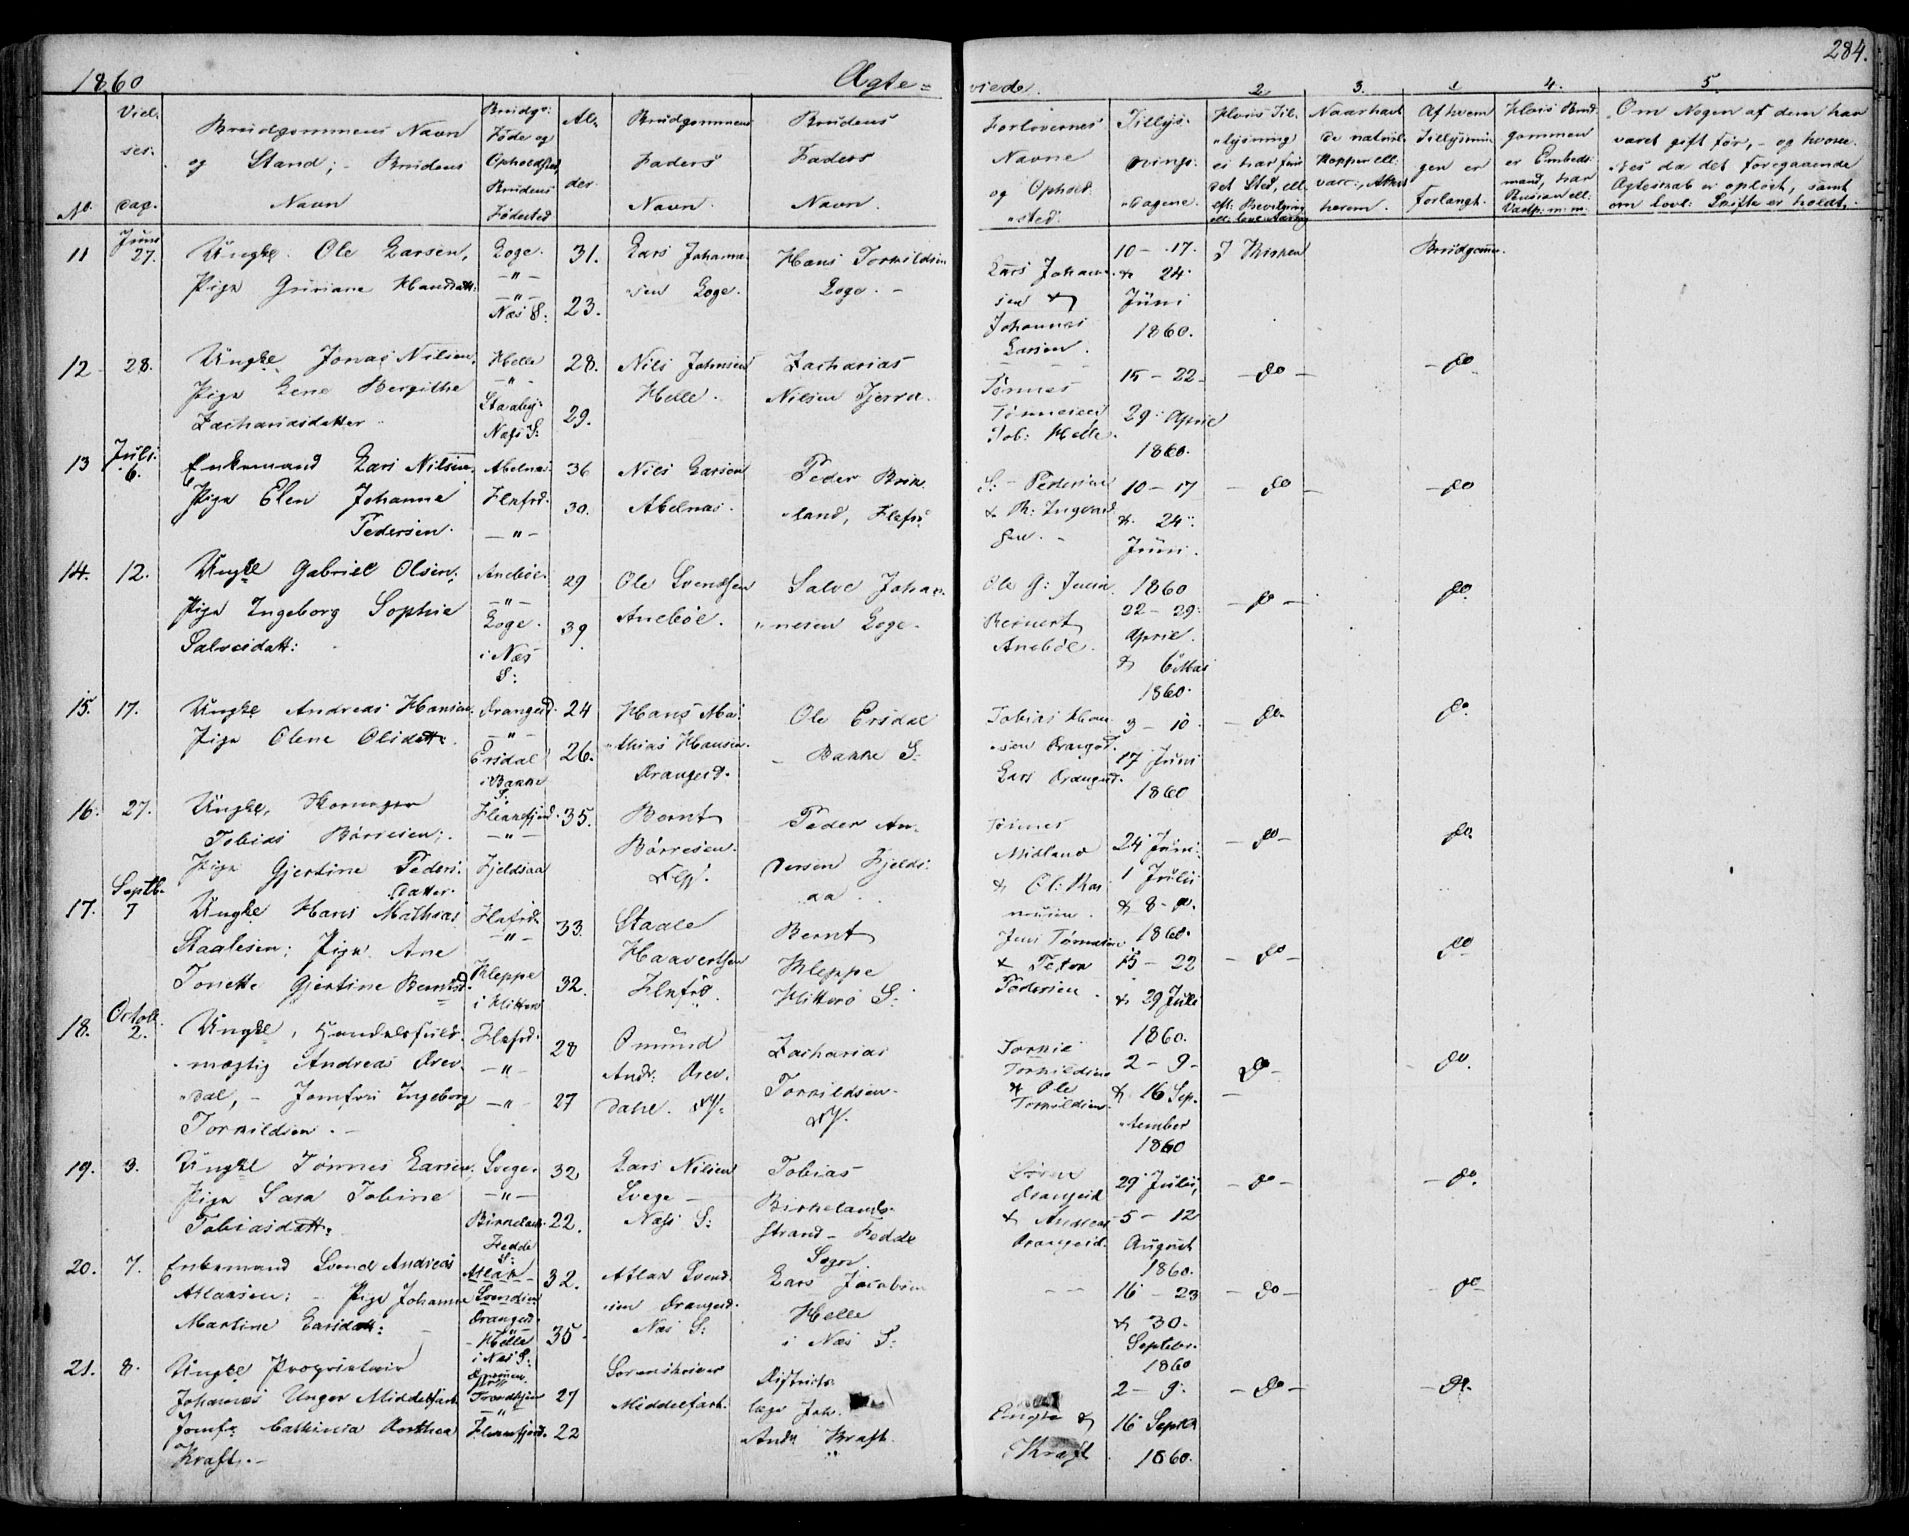 1860
Ægte=
viede.
284.
No.
Viel-
ses-
dag.
Brudgommens Navn
og Stand; - Brudens
Navn
Brudgs:
Føde og
Opholdsted
Brudens
Fødested
Al-
der
Brudgommens
Faders
Navn.
Brudens
Faders
Navn.
Forlovernes
Navne
og Ophold
sted.
Tillys-
nings-
dagene.
2
Hvis Til-
lysning
ei har fun
det Sted, ell.
3.
Naar havt
de naturl.
Kopper ell.
vacc:, Attest
herom.
Af hvem
Tillysnin
gen er
forlangt.
4.
Hvis Brud
gommen
er Embeds
mand, har
Pension ell.
5.
Om Nogen af dem har
været gift før, - og hvorle-
des da det foregaaende
Ægteskab er opløst, samt
om lovl: Skifte er holdt.
11
Juni
27.
Ungke. Ole Larsen,
Pige Guriane Hansdatt:
Loge.
Næs S:
31.
23.
Lars Johanne
sen Loge.
Hans Torkildsen
Loge. -
Lars Johanne
sen &
Johannes
Larsen.
10 - 17.
& 24
Juni
1860.
I Kirken
Brudgomm.
12
28.
Ungke. Jonas Nilsen,
Pige Lene Bergithe
Zachariasdatter
Helle
Næss S:
28.
29.
Nils Johnsen
Helle.
Zacharias
Nilsen
Tønnes
Tønnesen
Tob: Helle.
15 - 22
29 April
1860.
- do -
- do
13
Juli.
6.
Enkemand Lars Nilsen.
Pige Elen Johanna
Pedersen.
Abelnæs
Flkfrd.
36
30.
Nils Larsen
Abelnæs.
Peder Brik
land, Flkfr
S: Pedersen
10 - 17
& 24
Juni.
- do -
- do
14.
12.
Ungke Gabriel Olsen.
Pige Ingeborg Sophie
Salvesdatt:
Anebøe.
Loge.
i Næs
S:
29
39.
Ole Svendsen
Anebøe.
Salve Johan-
nesen Loge.
Anebøe.
1860
22 - 29.
April.
& 6 Mai
1860.
- do -
do.
15.
17.
Ungke Andreas Hansen.
Pige Olene Olsdatt:
Drangeid.
Ersdal
i Bakke
S:
24
26.
Hans Ma-
thias Hansen.
Drangeid.
Ole Ersdal
Bakke S:
Tobias Han
sen Drangeid.
Lars Drangeid.
3 - 10
17 Juni
1860
- do.
do.
16.
27.
Ungke,
Tobias Børresen;
Pige Gjertine Peders-
datter.
Flekkefjord.
Fjeldsaa
35.
Bernt
Børresen.
Peder An-
dersen Fjelds
aa
Tønnes
Midland
24 Juni
1 Julii
& 8
1860.
- do -
do.
17.
Septb.
7
Ungke Hans Mathias
Staalesen; Pige Ane
Tonette Gjertine Berntsd.
Flkfrd.
Kleppe
i Hitterø
33.
32.
Staale
Haavertsen
Flkfrd.
Bernt
Kleppe
Hitterø S:
Jens Tønnesen
& Peter
Pedersen.
15 - 22
& 29 Juli
1860.
- do -
do.
18.
Octob.
2.
Ungke, Handelsfuld-
mægtig Andreas Drev-
dal, - Jomfru Ingeborg
Torkildsen. -
Flkfrd.
28
27
Omund
Andr. Drev-
dahl.
Zacharias
Torkildsen.
Torkild
Torkildsen
& Ole
Torkildsen.
2 - 9 -
& 16 Sep-
tember
1860
do -
do.
19.
3.
Ungke Tønnes Larsen,
Pige Sara Tobine
Tobiasdatt:
Svege.
Birkeland.
Fedde
S:
32
22.
Lars Nilsen
Svege -
Næss S:
Tobias
Birkelands-
strand - Fedde
Sogn.
Søren
Drangeid
& Andreas
Drangeid.
29 Julii,
5 - 12
August
1860.
- do -
- do.
20.
7.
Enkemand Svend Andreas
Atlaksen; - Pige Johanne
Martine Larsdatt:
Atlak
Svendsen
Drangeid.
Helle
i Næs S:
32.
35.
Atlak Svend-
sen Drangeid.
Næs S:
Lars Jacobsen
Helle
i Næs S:
16 - 23
& 30.
Septebr.
1860
- do -
- do -
21.
8.
Ungke Proprietair
Johannes Unger Middelfart
Jomfr. Cathinca Dorthea
Kraft. -
Flekkefjord.
27
22
Sorenskriver
Middelfart.
Districts-
læge Joh.
Andr. Kraft.
Kraft
2 - 9.
16 Septbr
1860.
- do -
- do.